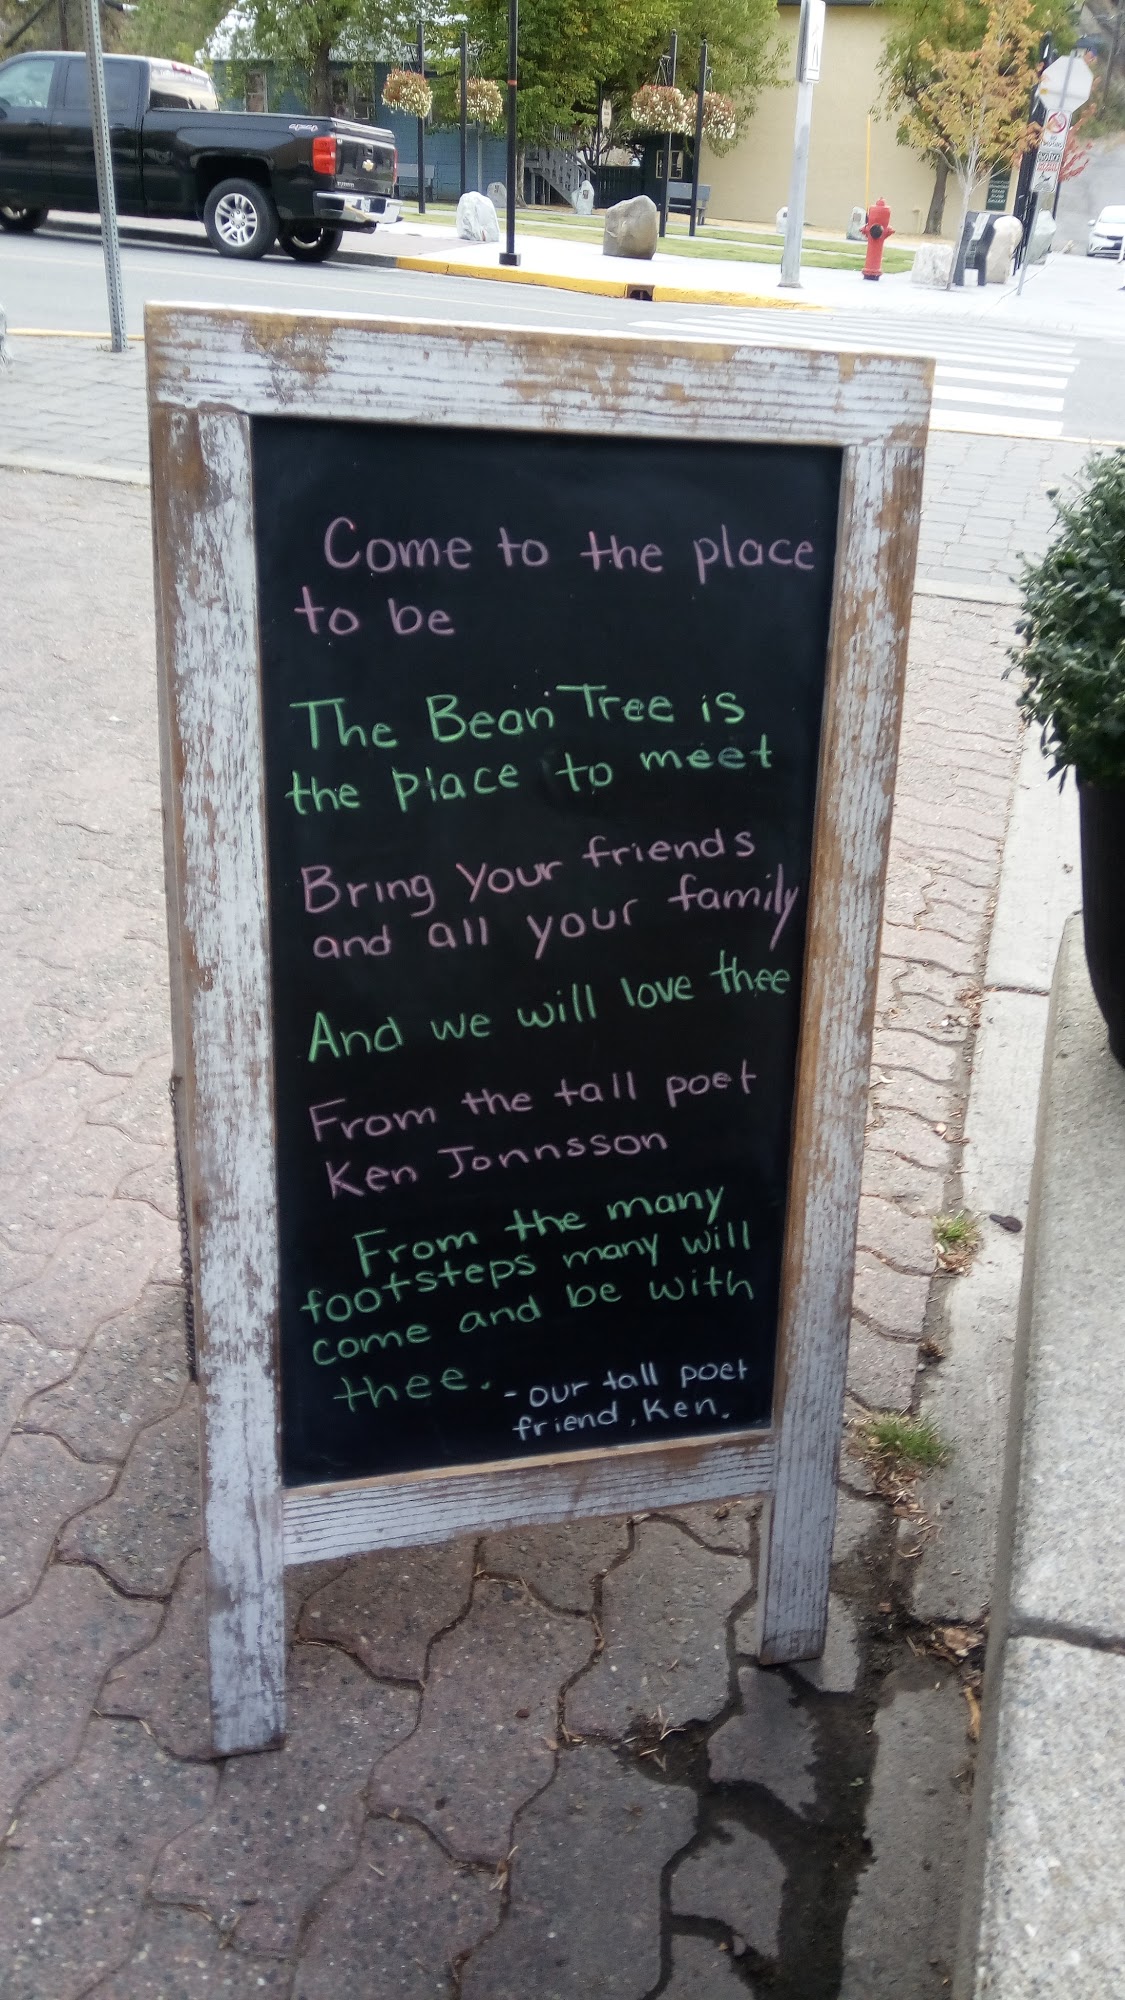 Come to the place
to be
The Bean Tree is
the place to meet
Bring your friends
and all your family
And we will love thee
From the tall poet
Ken Jonnsson
From the many
footsteps many will
come and be with
thee.
- our tall poet
friend, Ken.